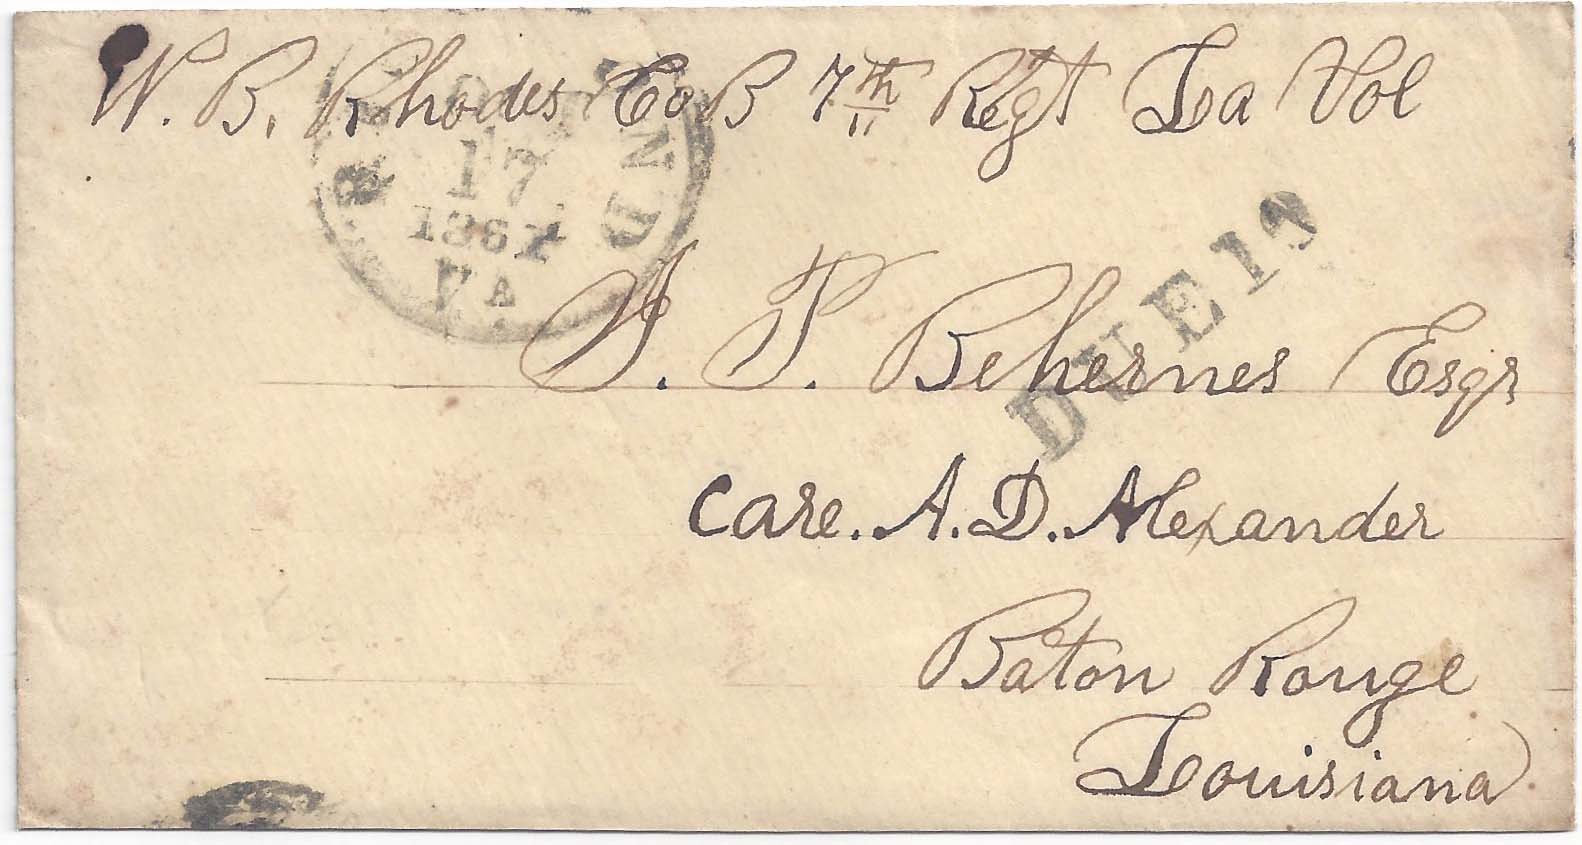 W. B. Rhodes Co B 7th Regt La Vol
17
1861
VA
DUE 10
J. P. Behernes Esqr
Care. A. D. Alexander
Baton Rouge
Louisiana